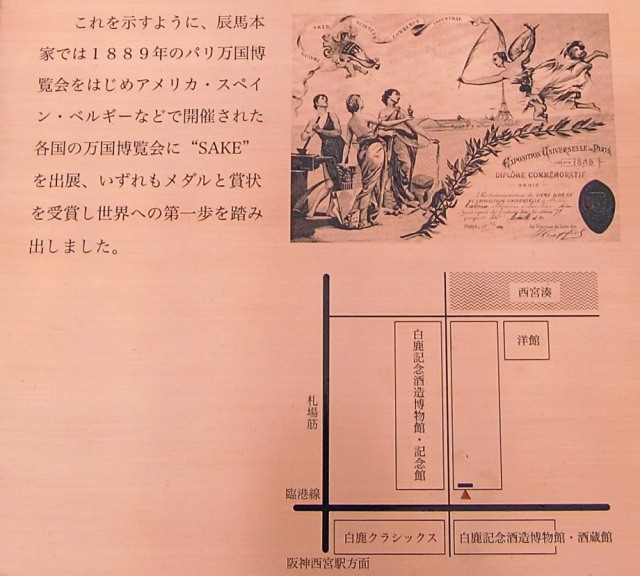 これを示すように、辰馬本
家では１８８９年のパリ万国博
覧会をはじめアメリカ・スペイ
ン・ベルギーなどで開催された
各国の万国博覧会に“SAKE”
を出展、いずれもメダルと賞状
を受賞し世界への第一歩を踏み
出しました。
EXPOSITION UNIVERSELLE DE PARIS
1889
DIPLÔME COMMÉMORATIF
西宮湊
洋館
白鹿記念酒造博物館・記念館
札場筋
臨港線
白鹿クラシックス
白鹿記念酒造博物館・酒蔵館
阪神西宮駅方面